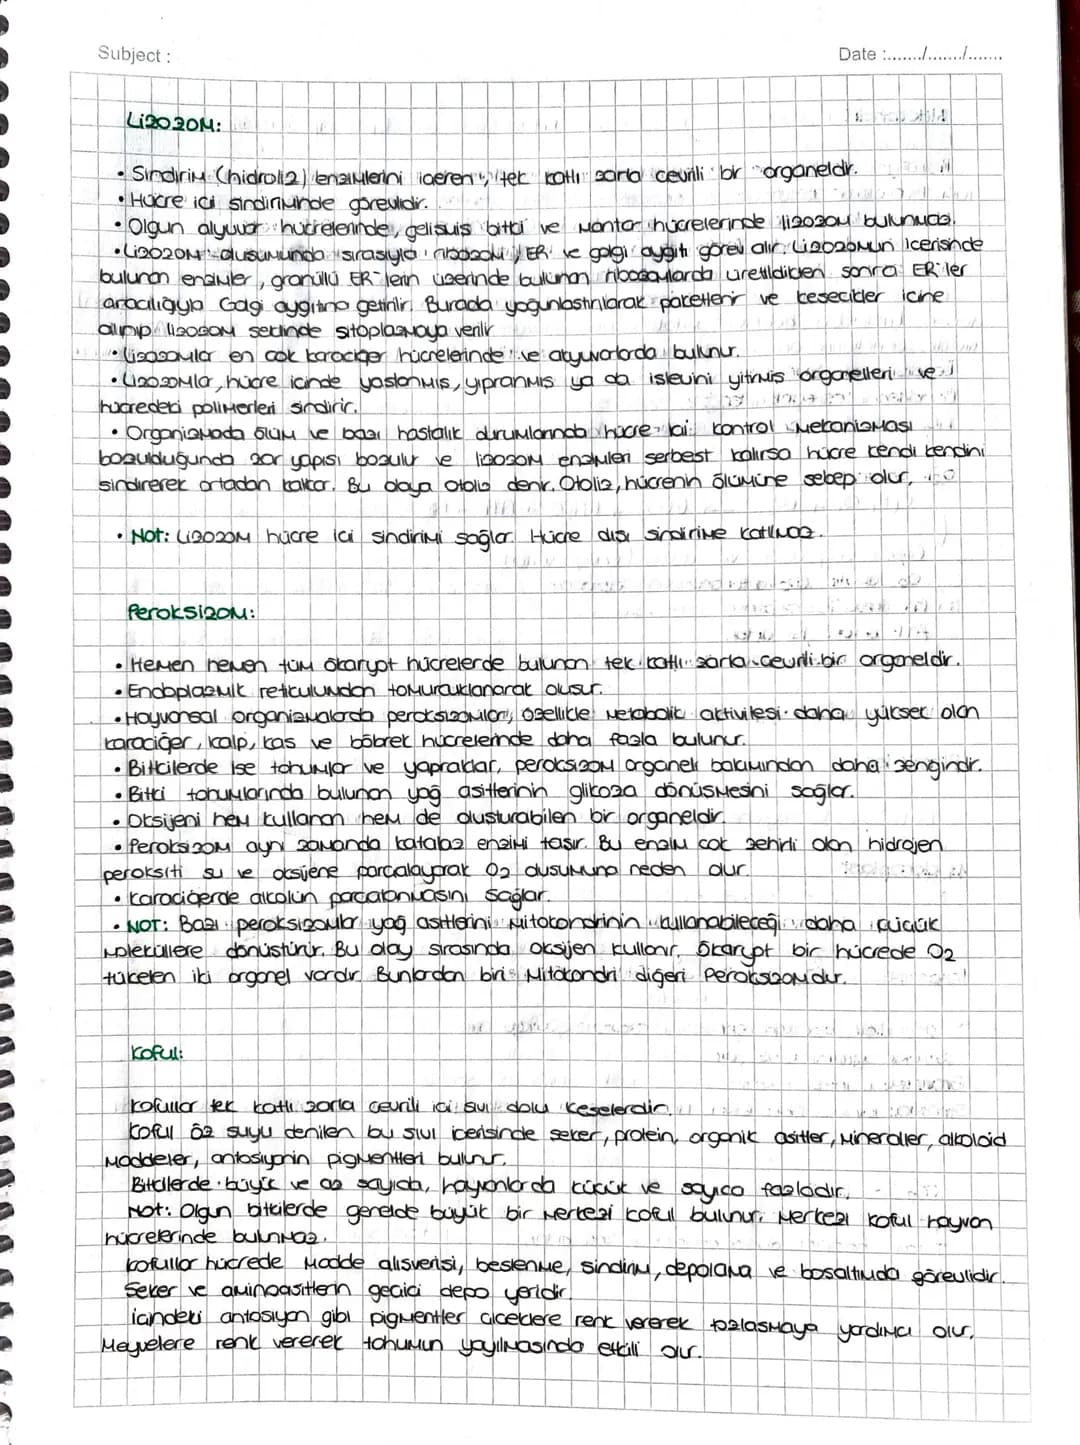 Subject :
Date :......./......./.......
Lizozom:
• Sindirim (hidroliz) enzimlerini içeren, tek katlı zarla çevrili bir organeldir.
• Hücre içi sindiriminde görevlidir.
• Olgun alyuvar hücrelerinde, gelişmiş bitki ve mantar hücrelerinde lizozom bulunmaz.
• Lizozom oluşumunda sırasıyla ribozom, ER ve golgi aygıtı görev alır. Lizozomun içerisinde
bulunan enzimler, granüllü ER'lerin üzerinde bulunan ribozomlarda üretildikten sonra ER'ler
aracılığıyla Golgi aygıtına getirilir. Burada yoğunlaştırılarak paketlenir ve kesecikler içine
alınıp lizozom şeklinde sitoplazmaya verilir
• Lizozomlar en çok karaciğer hücrelerinde ve akyuvarlarda bulunur.
• Lizozomlar, hücre içinde yaşlanmış, yıpranmış ya da işlevini yitirmiş organelleri ve
hücredeki polimerleri sindirir.
• Organizmada ölüm ve bazı hastalık durumlarında hücre içi kontrol mekanizması
bozulduğunda zar yapısı bozulur ve lizozom enzimleri serbest kalırsa hücre kendi kendini
sindirerek ortadan kalkar. Bu olaya otoliz denir. Otoliz, hücrenin ölümüne sebep olur.
• Not: Lizozom hücre içi sindirimi sağlar. Hücre dışı sindirime katılmaz.
Peroksizom:
• Hemen hemen tüm ökaryot hücrelerde bulunan tek katlı zarla çevrili bir organeldir.
• Endoplazmik retikulumdan tomurcuklanarak oluşur.
• Hayvansal organizmalarda peroksizomlar, özellikle metabolik aktivitesi daha yüksek olan
karaciğer, kalp, kas ve böbrek hücrelerinde daha fazla bulunur.
• Bitkilerde ise tohumlar ve yapraklar, peroksizom organeli bakımından daha zengindir.
• Bitki tohumlarında bulunan yağ asitlerinin glikoza dönüşmesini sağlar.
• Oksijeni hem kullanan hem de oluşturabilen bir organeldir.
• Peroksizom aynı zamanda katalaz enzimi taşır. Bu enzim çok zehirli olan hidrojen
peroksiti su ve oksijene parçalayarak O2 oluşumuna neden olur.
• Karaciğerde alkolün parçalanmasını sağlar.
• NOT: Bazı peroksizomlar yağ asitlerini mitokondrinin kullanabileceği daha küçük
moleküllere dönüştürür. Bu olay sırasında oksijen kullanır. Ökaryot bir hücrede O2
tüketen iki organel vardır. Bunlardan biri mitokondri diğeri Peroksizomdur.
Koful:
Kofullar tek katlı zarla çevrili içi sıvı dolu keselerdir.
Koful öz suyu denilen bu sıvı içerisinde şeker, protein, organik asitler, mineraller, alkoloid
maddeler, antosiyanin pigmentleri bulunur.
Bitkilerde büyük ve az sayıda, hayvanlarda küçük ve sayıca fazladır.
Not: Olgun bitkilerde genelde büyük bir merkezi koful bulunur. Merkezi koful hayvan
hücrelerinde bulunmaz.
Kofullar hücrede madde alışverişi, beslenme, sindirim, depolama ve boşaltımda görevlidir.
Şeker ve aminoasitlerin geçici depo yeridir.
İçindeki antosiyan gibi pigmentler çiçeklere renk vererek tozlaşmaya yardımcı olur.
Meyvelere renk vererek tohumun yayılmasında etkili olur.